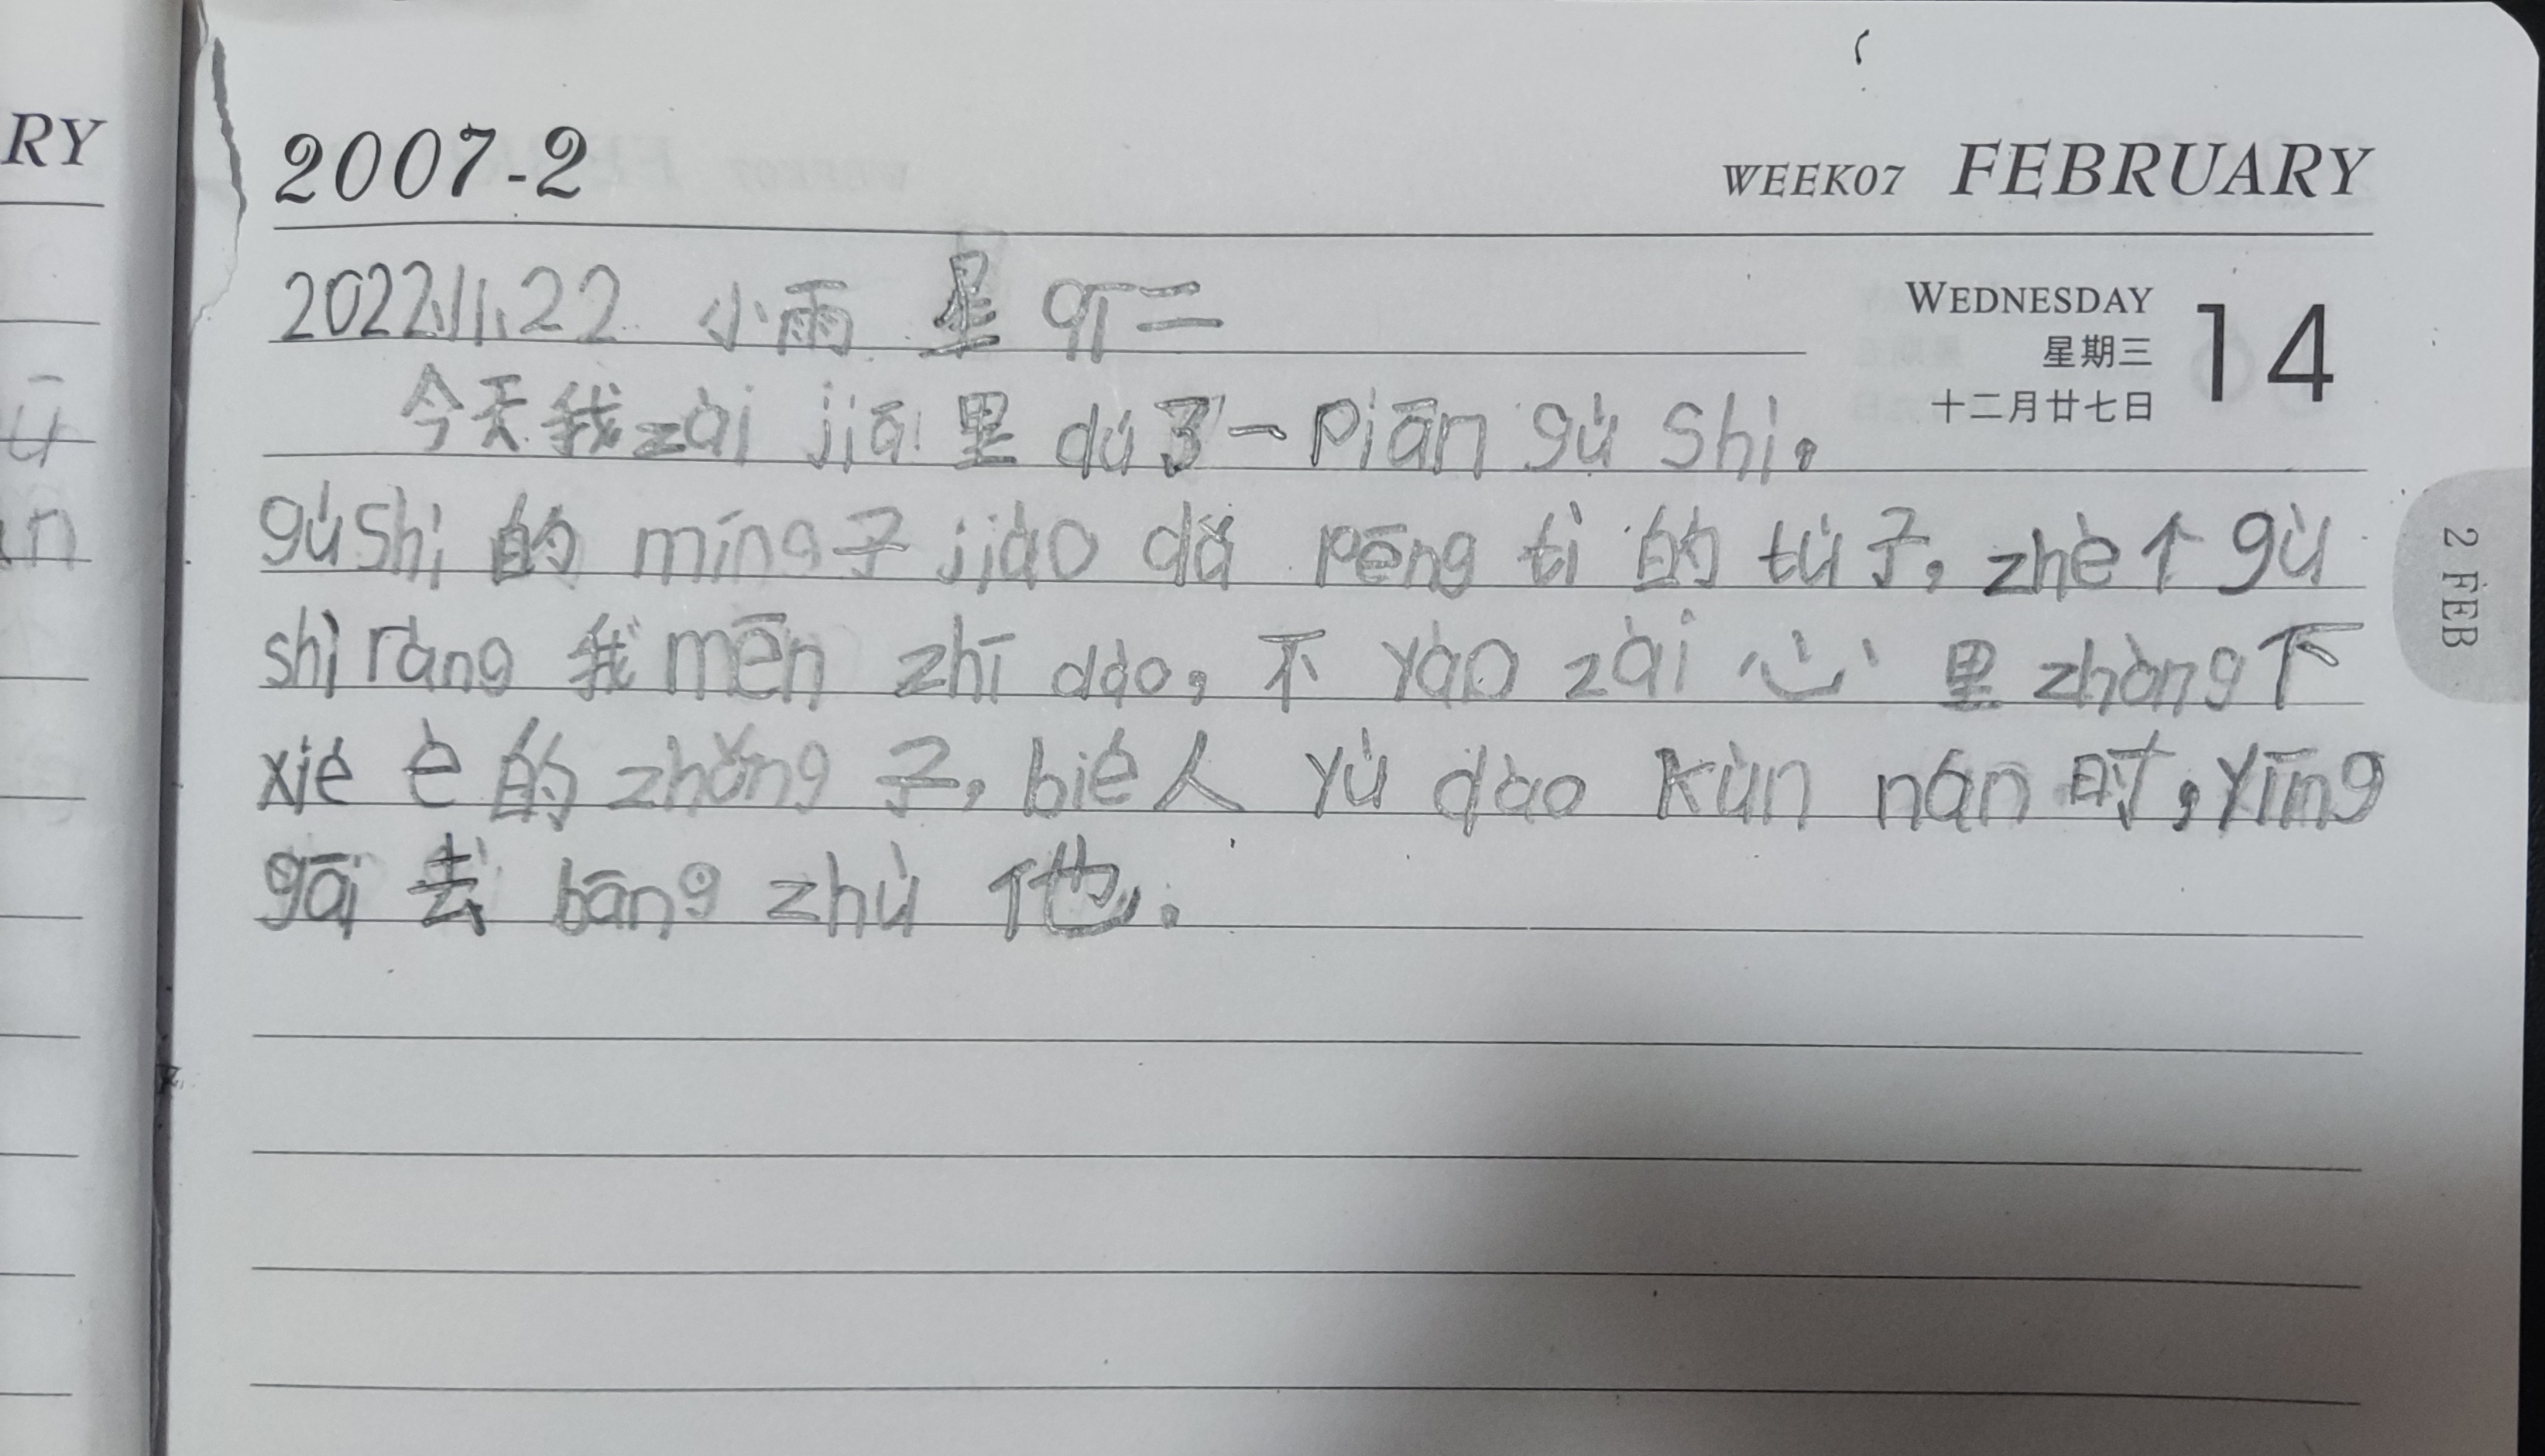 RY
2007-2
WEEK07 FEBRUARY
2022.11.22 小雨 星qī二
WEDNESDAY 14
星期三
十二月廿七日
今天我zài jiā里dú了一piān gù shì。
gùshì的míng子jiào dǎ pēng tì的tù子。zhè个gù
shì ràng我mēn zhī dào,不yào zài心里zhòng下
xié è的zhǒng子,bié人yù dào kùn nán时,yīng
gāi去bāng zhù他。
2 FEB